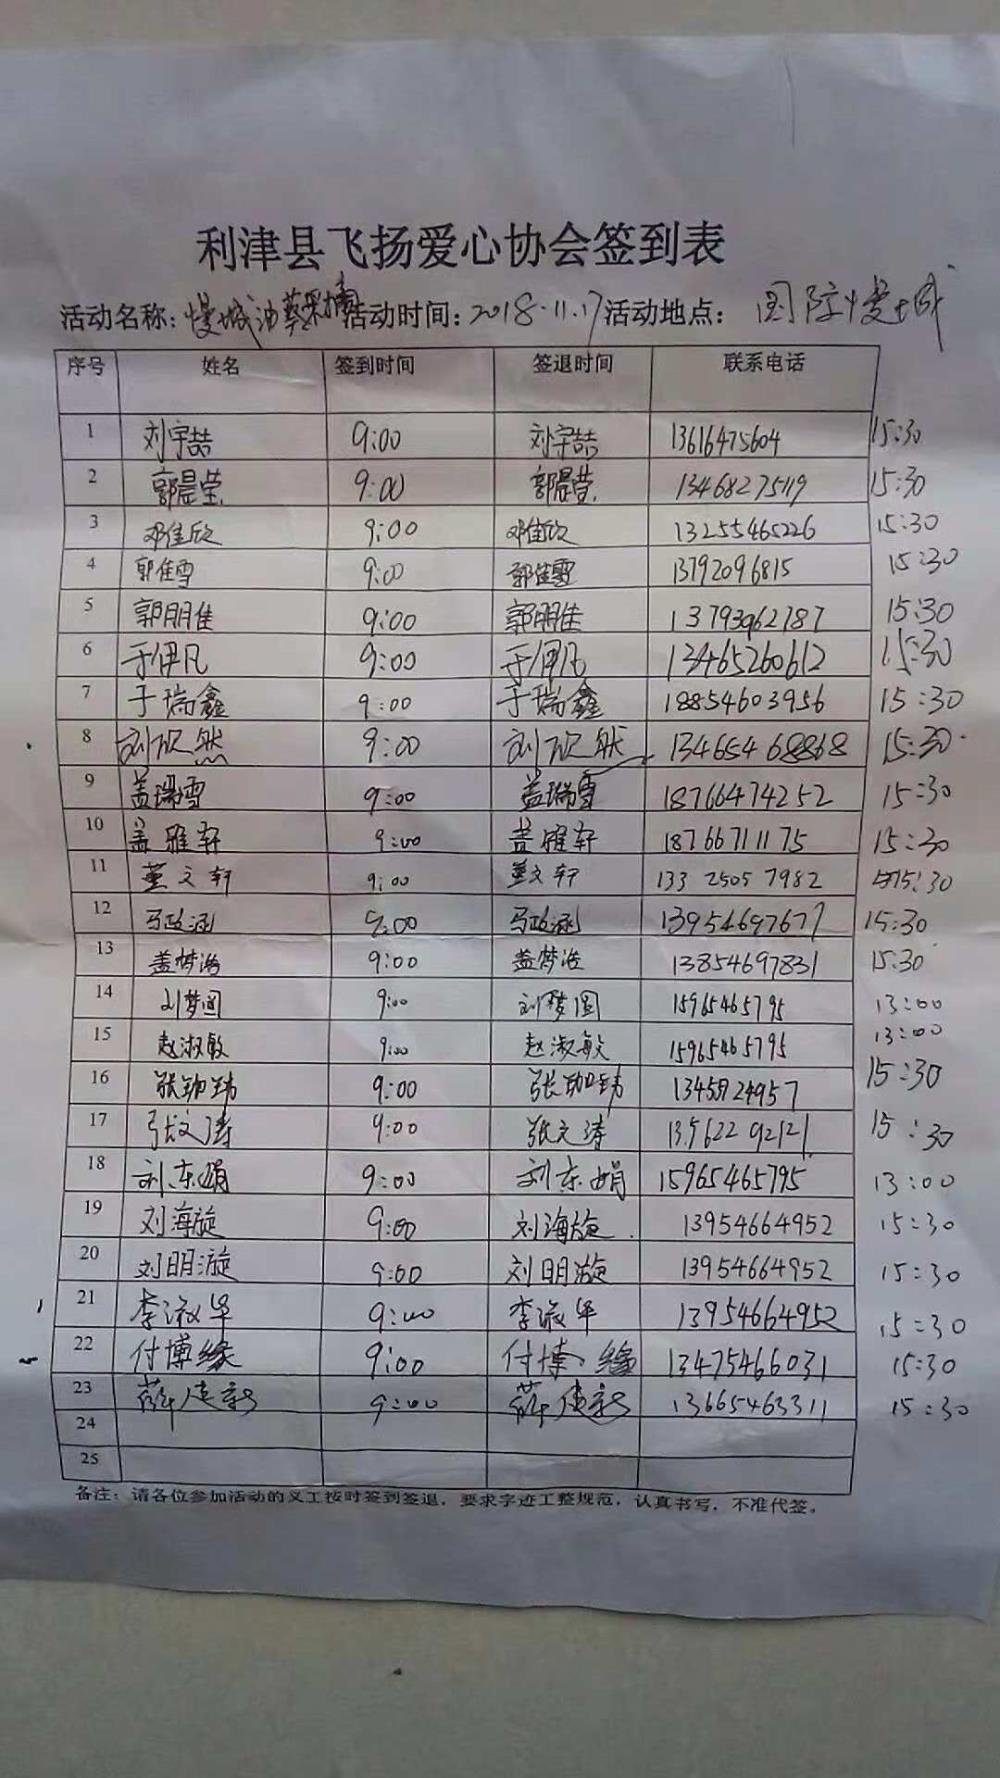 利津县飞扬爱心协会签到表
活动名称：慢城油葵采摘 活动时间：2018.11.17 活动地点： 国际慢城
序号 姓名 签到时间 签退时间 联系电话
1 刘宇喆 9:00 刘宇喆 13616475604 15:30
2 郭晨莹 9:00 郭晨莹 13468275119 15:30
3 邓佳欣 9:00 邓佳欣 13255465226 15:30
4 郭佳雪 9:00 郭佳雪 13792096815 15:30
5 郭朋佳 9:00 郭朋佳 13793962787 15:30
6 于伊凡 9:00 于伊凡 13465260612 15:30
7 于瑞鑫 9:00 于瑞鑫 18854603956 15:30
8 刘欣然 9:00 刘欣然 13465468868 15:30
9 盖瑞雪 9:00 盖瑞雪 18766474252 15:30
10 盖雅轩 9:00 盖雅轩 18766711175 15:30
11 董文轩 9:00 董文轩 133 2505 7982 15:30
12 马政涵 9:00 马政涵 13954697677 15:30
13 盖梦浩 9:00 盖梦浩 13854697831 15:30
14 刘梦圆 9:00 刘梦圆 15965465795 13:00
15 赵淑敏 9:00 赵淑敏 15965465795 13:00
16 张珈玮 9:00 张珈玮 15:30
17 张文涛 9:00 张文涛 13.5622 92121 15:30
18 刘东娟 9:00 刘东娟 15965465795 13:00
19 刘海旋 9:00 刘海旋 13954664952 15:30
20 刘明漩 9:00 刘明漩 13954664952 15:30
21 李淑华 9:00 李淑华 13954664952 15:30
22 付博缘 9:00 付博缘 13475466031 15:30
23 薛建新 9:00 薛建新 13665463311 15:30
24
25
备注：请各位参加活动的义工按时签到签退，要求字迹工整规范，认真书写，不准代签。